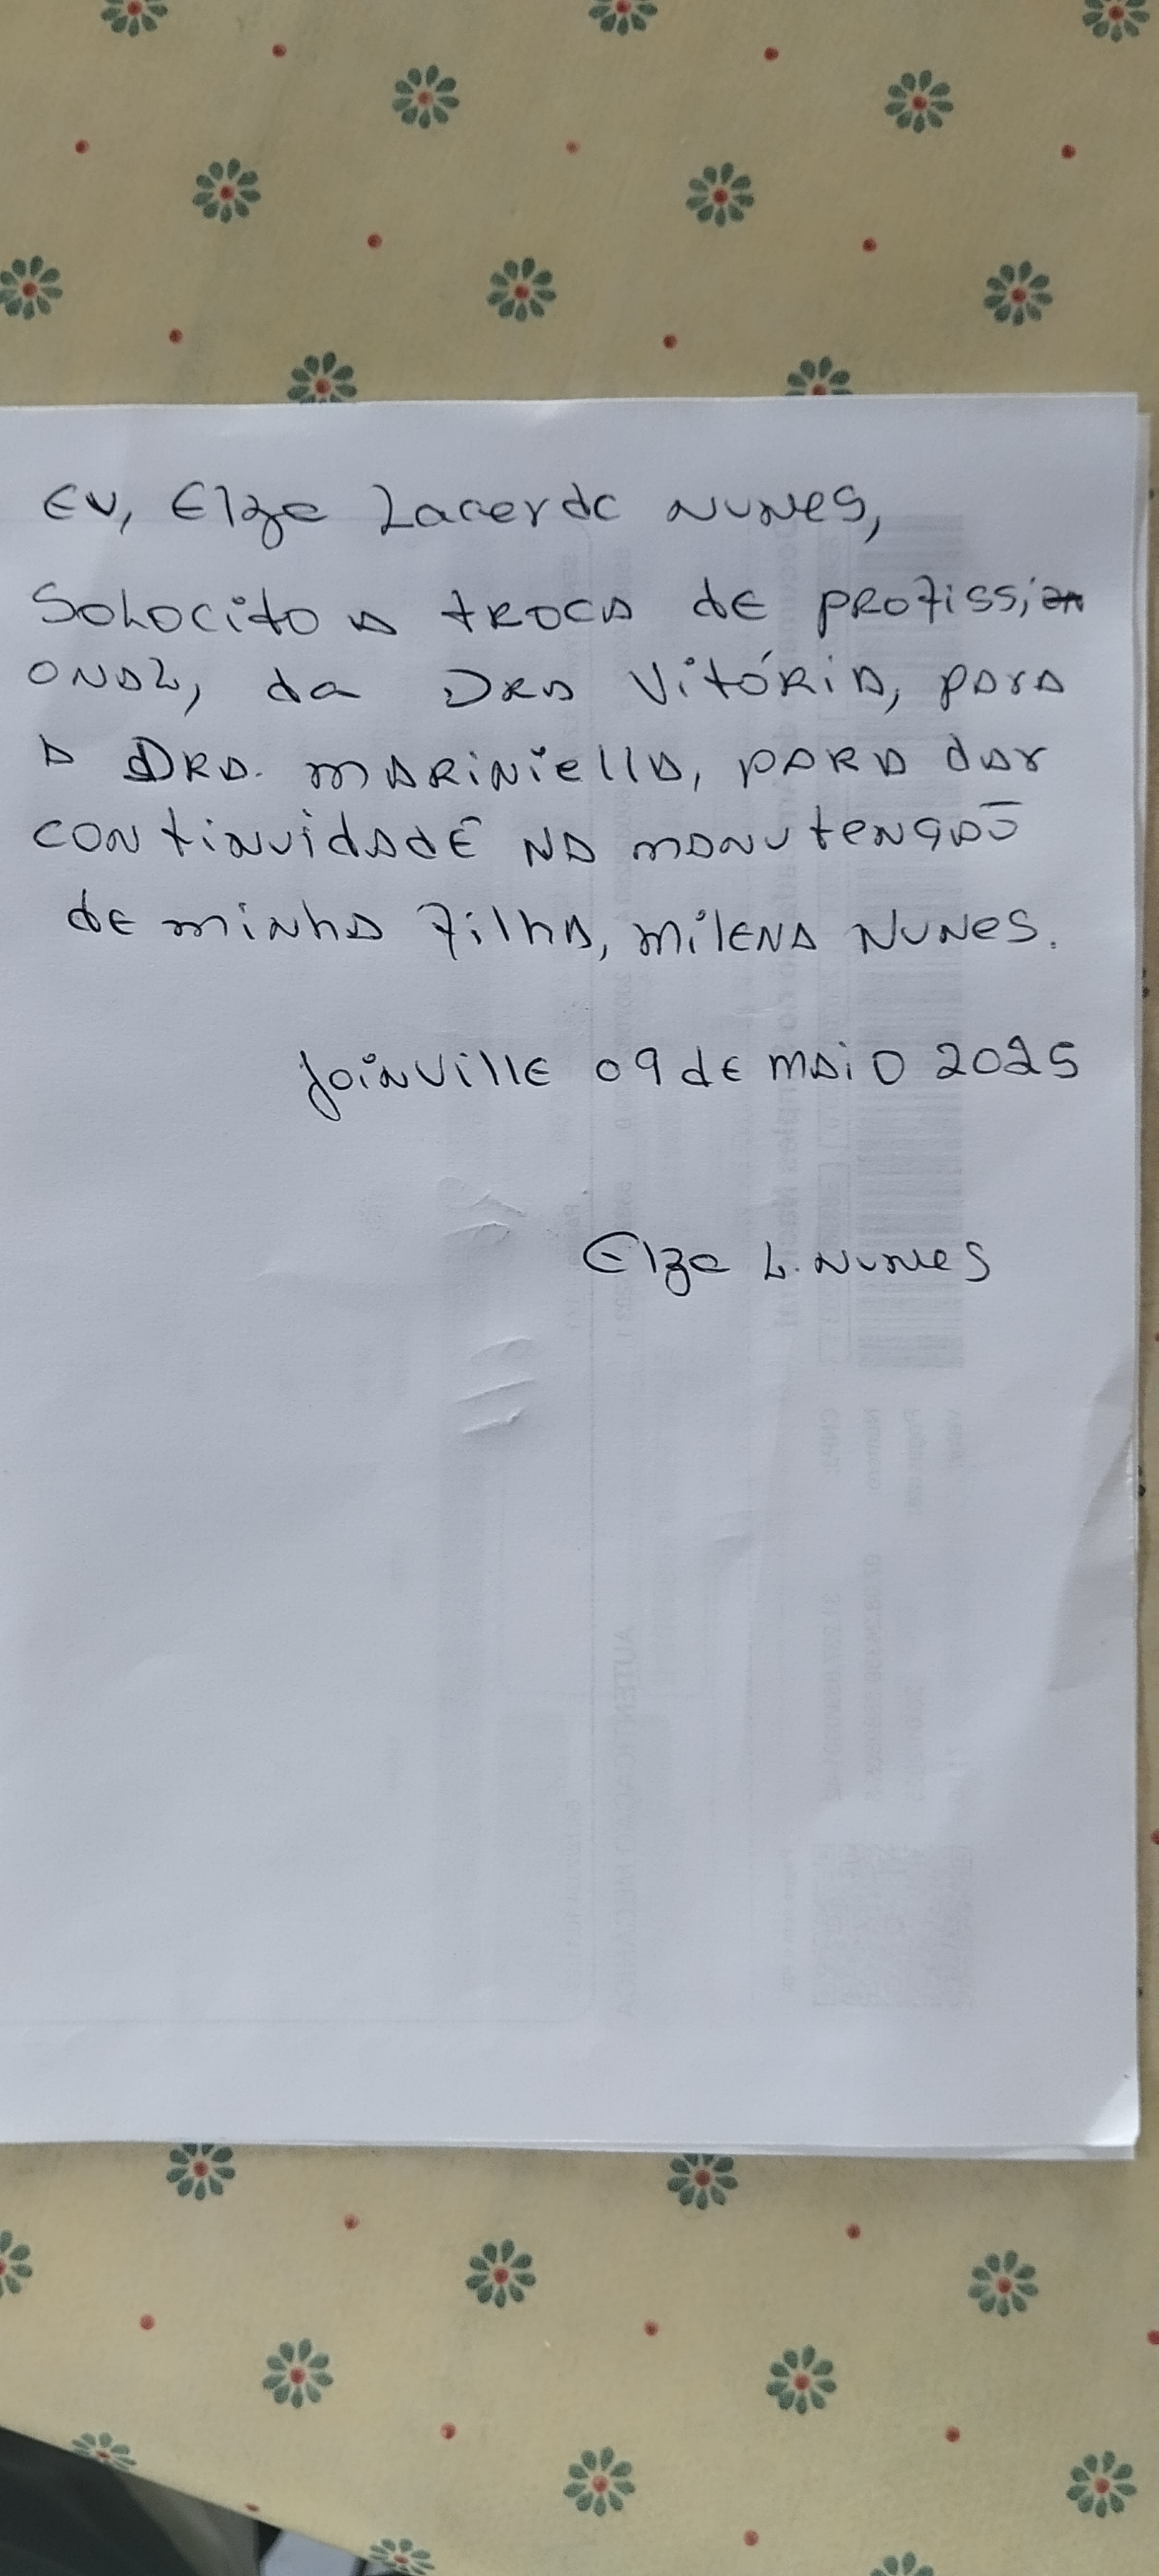 Eu, Elza Lacerda Nunes,
Solocito a troca de profissi
onal, da Dra Vitória, para
a Dra. Mariniella, para dar
continuidadê na manutenção
de minha filha, milena Nunes.
Joinville 09 de maio 2025
Elza L. Nunes
AUTENTICAÇÃO MECÂNICA